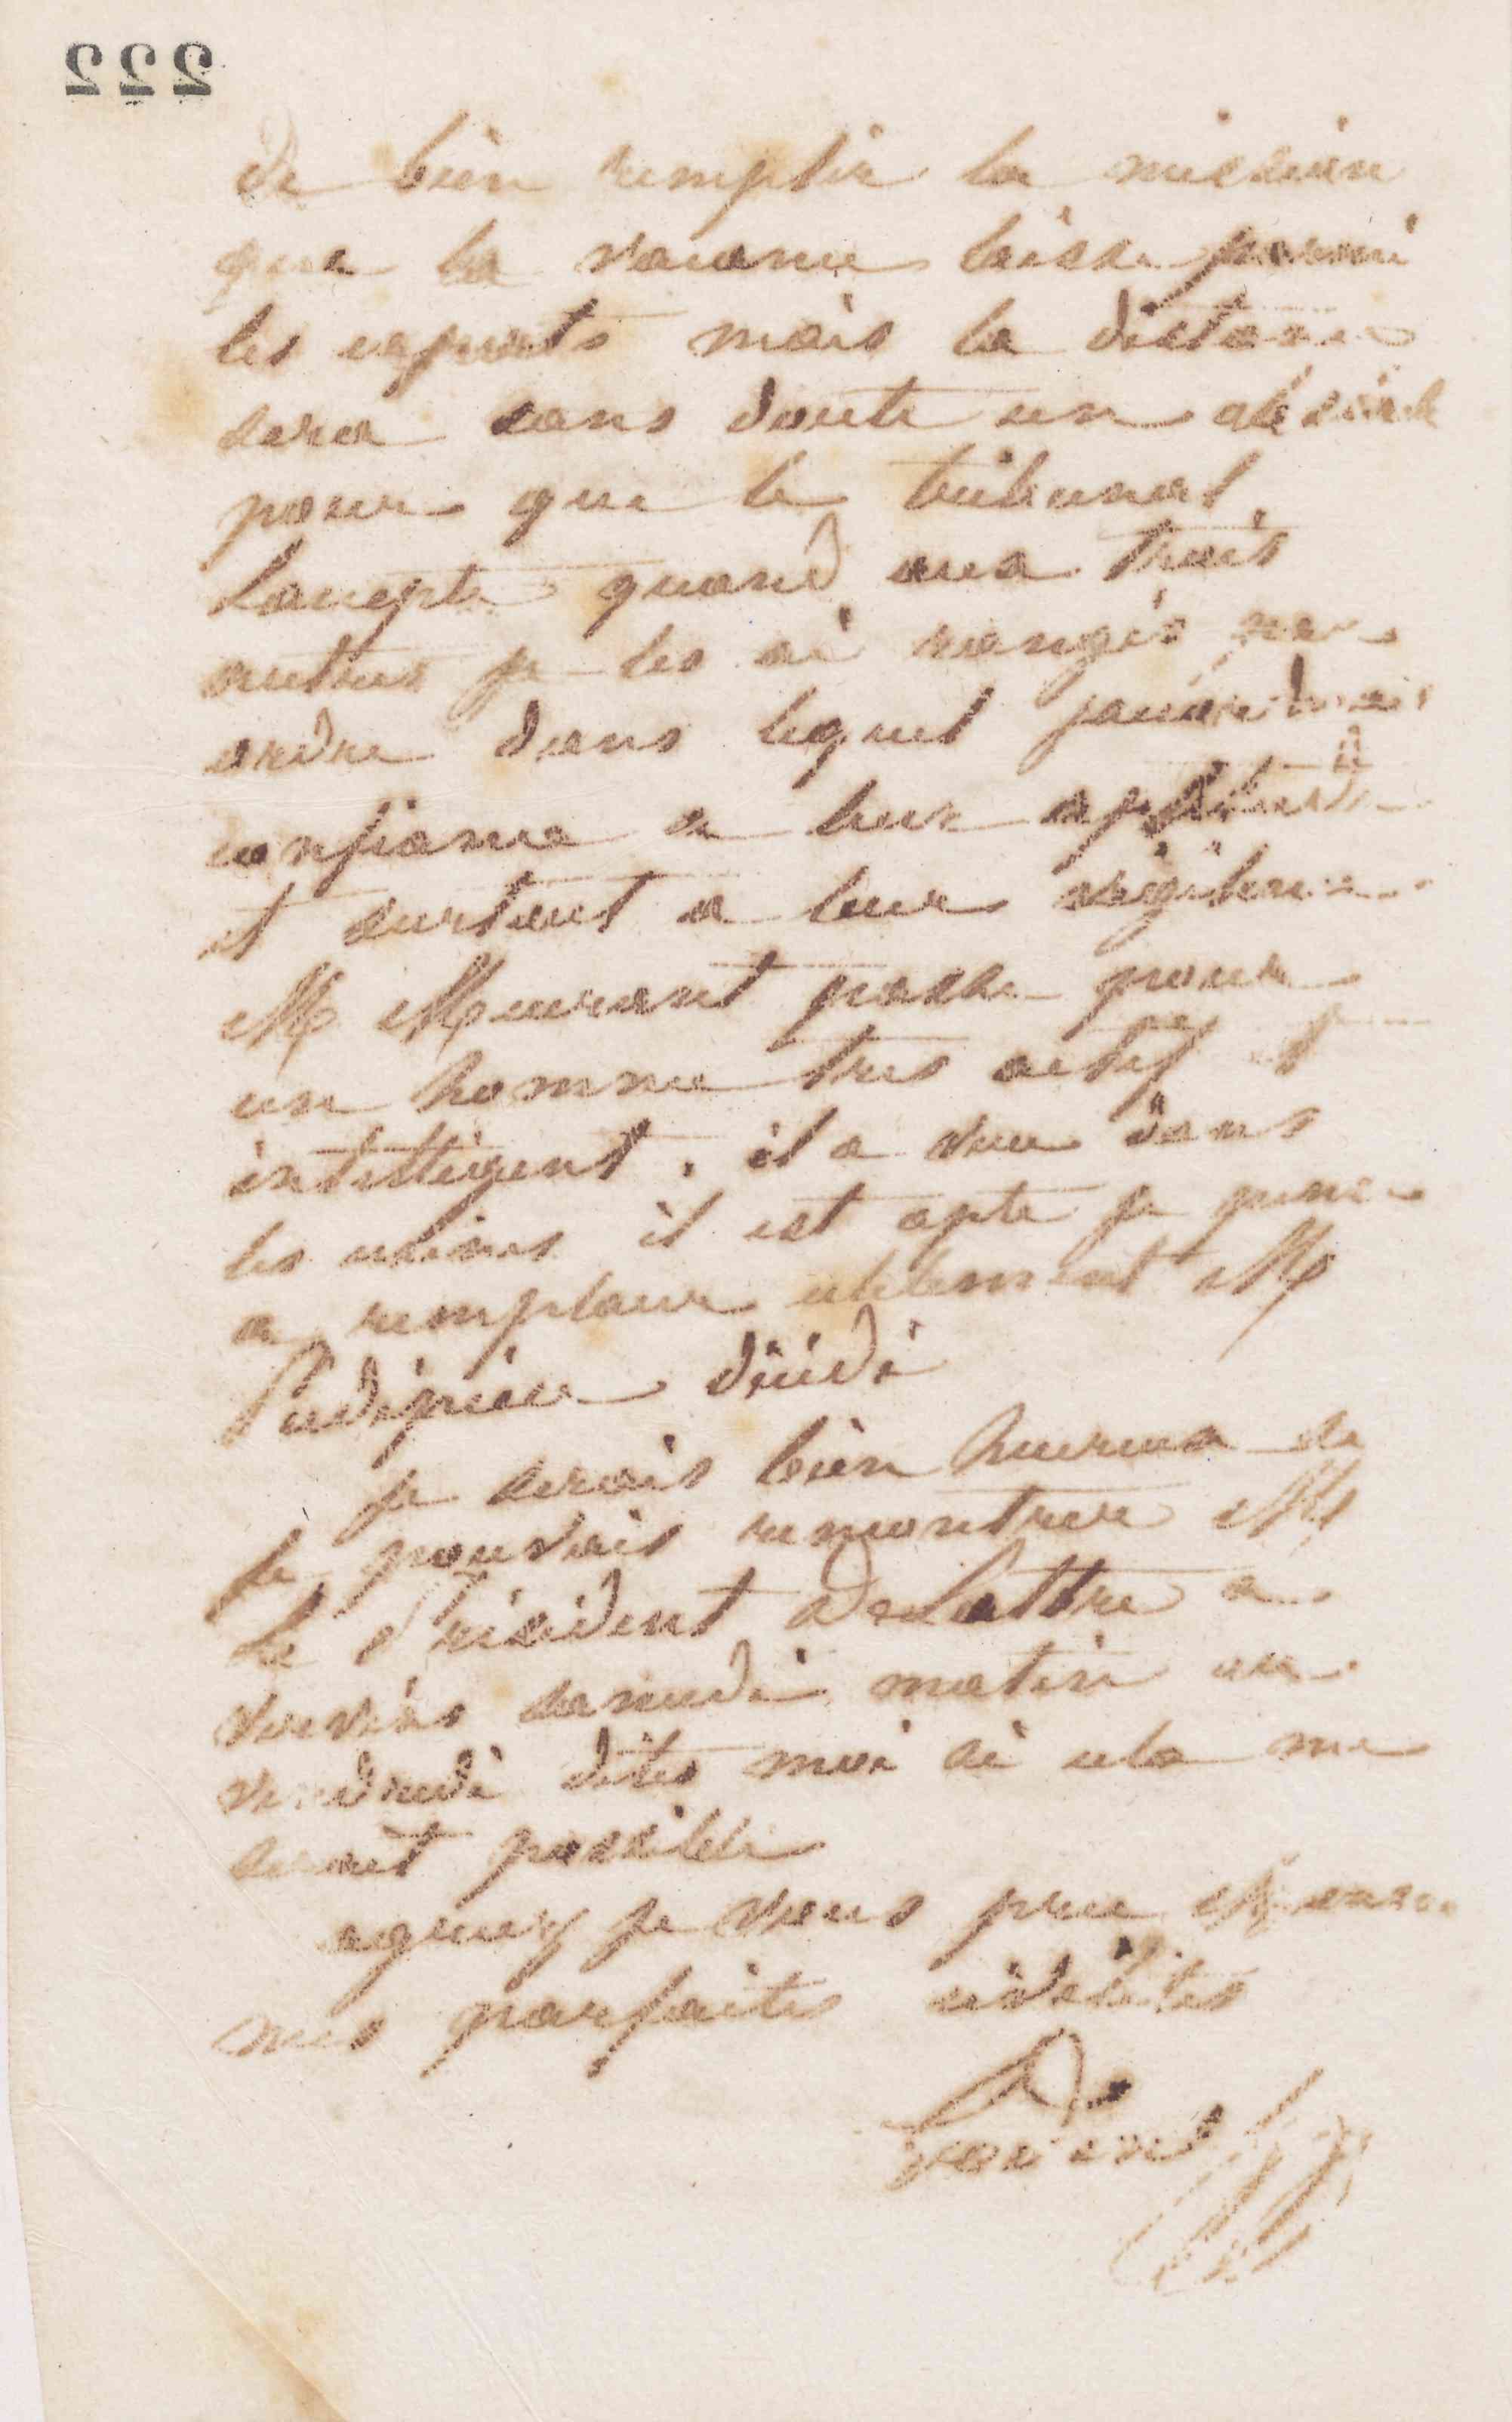 222
de bien remplir la mission
que la vacance laisse parmi
les experts mais la distance
sera sans doute un obstacle
pour que le tribunal
laccepte quand aux trois
autres je les ai rangés par
ordre dans lequel jaurais
confiance a leur aptitude
et surtout a leur vigilance
M Meurant passe pour
un homme tres actif et
intelligent. il a vecu dans
les usines il est apte je pense
a remplacer utilement M
décédé
je serais bien heureux de
le pouvais rencontrer M
le Président Delattre a
Vervins samedi matin ou
vendredi dites moi si cela me
serait possible
agreez je vous prie Monsieur
mes parfaites civilités
Godin